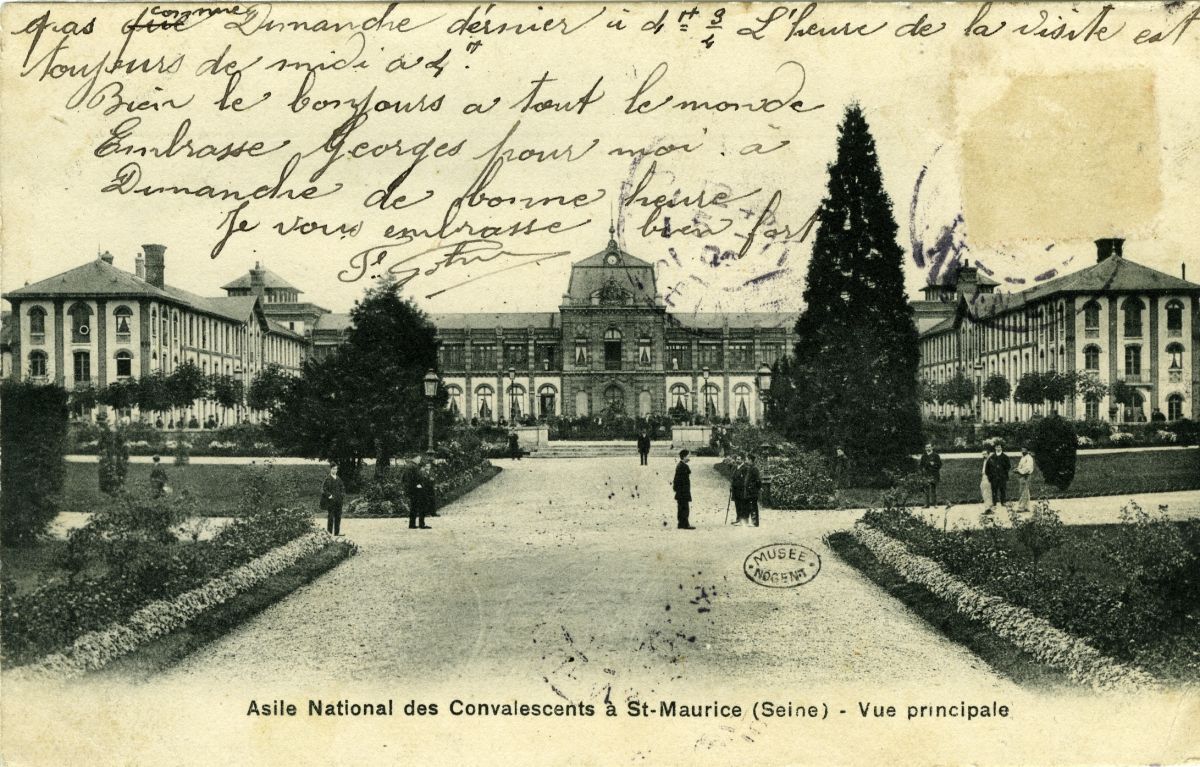 pas comme Dimanche dernier à 4 3/4 L'heure de la visite est
toujours de midi à 4
Bien le bonjours a tout le monde
Embrasse Georges pour moi à
Dimanche de bonne heure
Je vous embrasse bien fort
MUSEE
NOGENT
Asile National des Convalescents à St-Maurice (Seine) - Vue principale